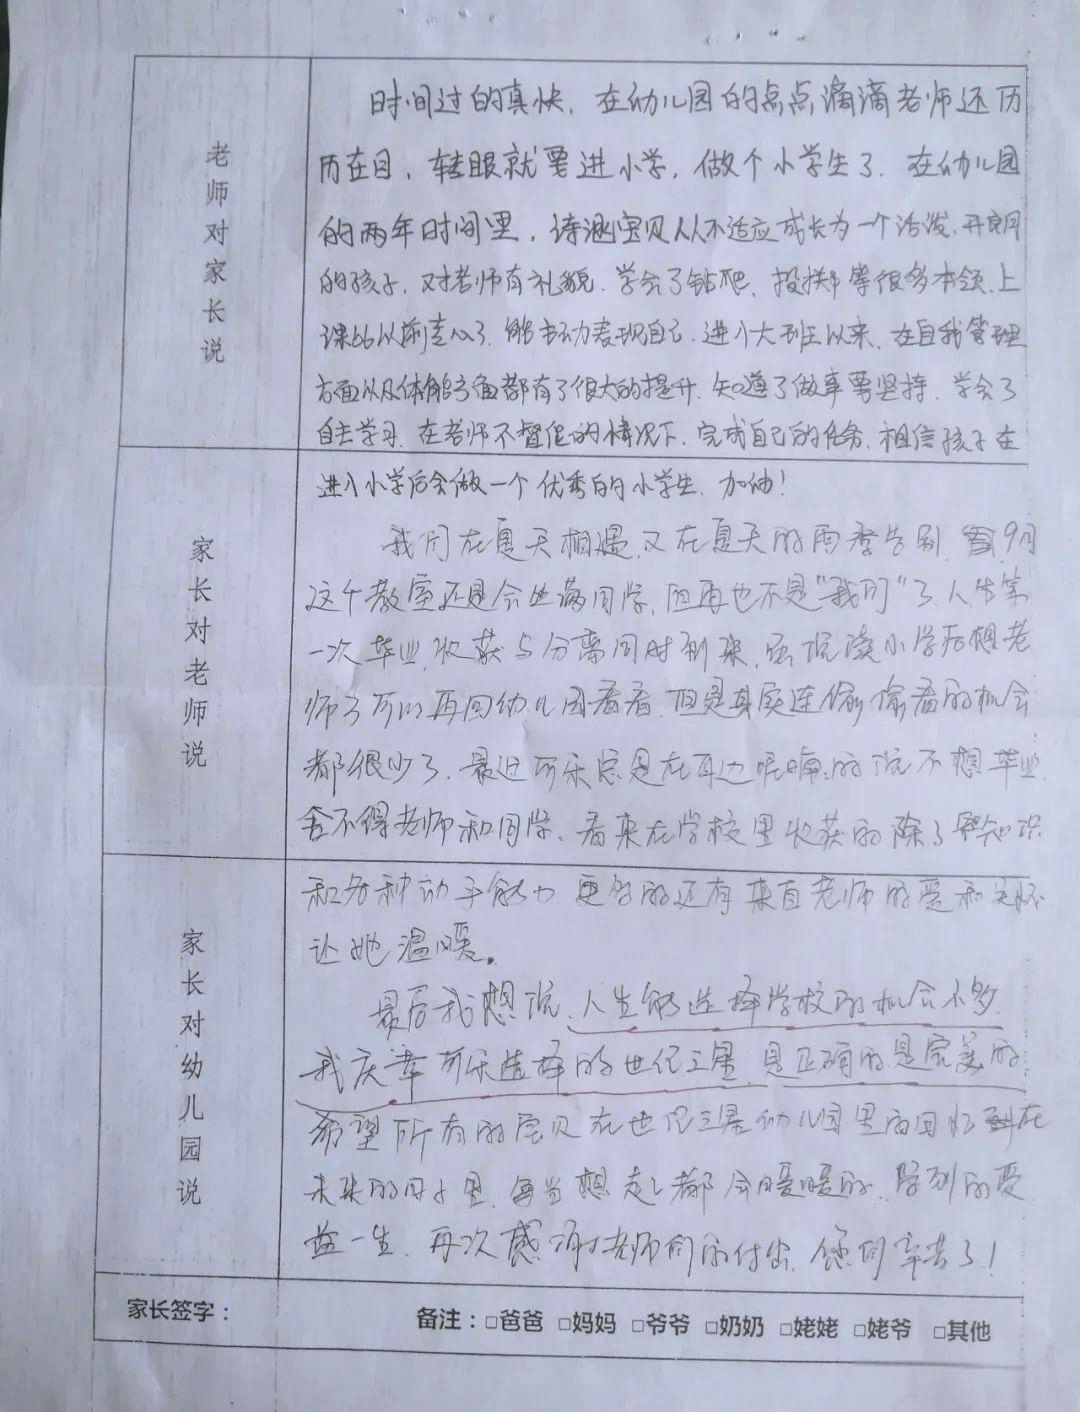 老师对家长说
时间过的真快，在幼儿园的点点滴滴老师还历
历在目，转眼就要进小学，做个小学生了．在幼儿园
的两年时间里，诗涵宝贝从不适应成长为一个活泼、开朗
的孩子，对老师有礼貌．学会了钻爬、投掷等很多本领、上
课比以前专心了，能主动表现自己．进入大班以来、在自我管理
方面以及体能方面都有了很大的提升．知道了做事要坚持．学会了
自主学习．在老师不督促的情况下．完成自己的任务．相信孩子在
进入小学后会做一个优秀的小学生．加油！
家长对老师说
我们在夏天相遇，又在夏天的雨季告别，9月
这个教室还是会坐满同学，但再也不是“我们”了．人生第
一次毕业，收获与分离同时到来，虽说读小学后想老
师了可以再回幼儿园看看．但是其实连偷偷看的机会
都很少了．最近可乐总是在耳边呢喃的说不想毕业
舍不得老师和同学、看来在学校里收获的除了知识
和各种动手能力 更多的还有来自老师的爱和关怀
让她温暖。
家长对幼儿园说
最后我想说，人生能选择学校的机会不多，
我庆幸可乐选择的世纪三星，是正确的是完美的，
希望所有的宝贝在世纪三星幼儿园里的回忆在
未来的日子里，每当想起都会暖暖的，学到的受
益一生．再次感谢老师们的付出，您们辛苦了！
家长签字： 备注：□爸爸 □妈妈 □爷爷 □奶奶 □姥姥 □姥爷 □其他